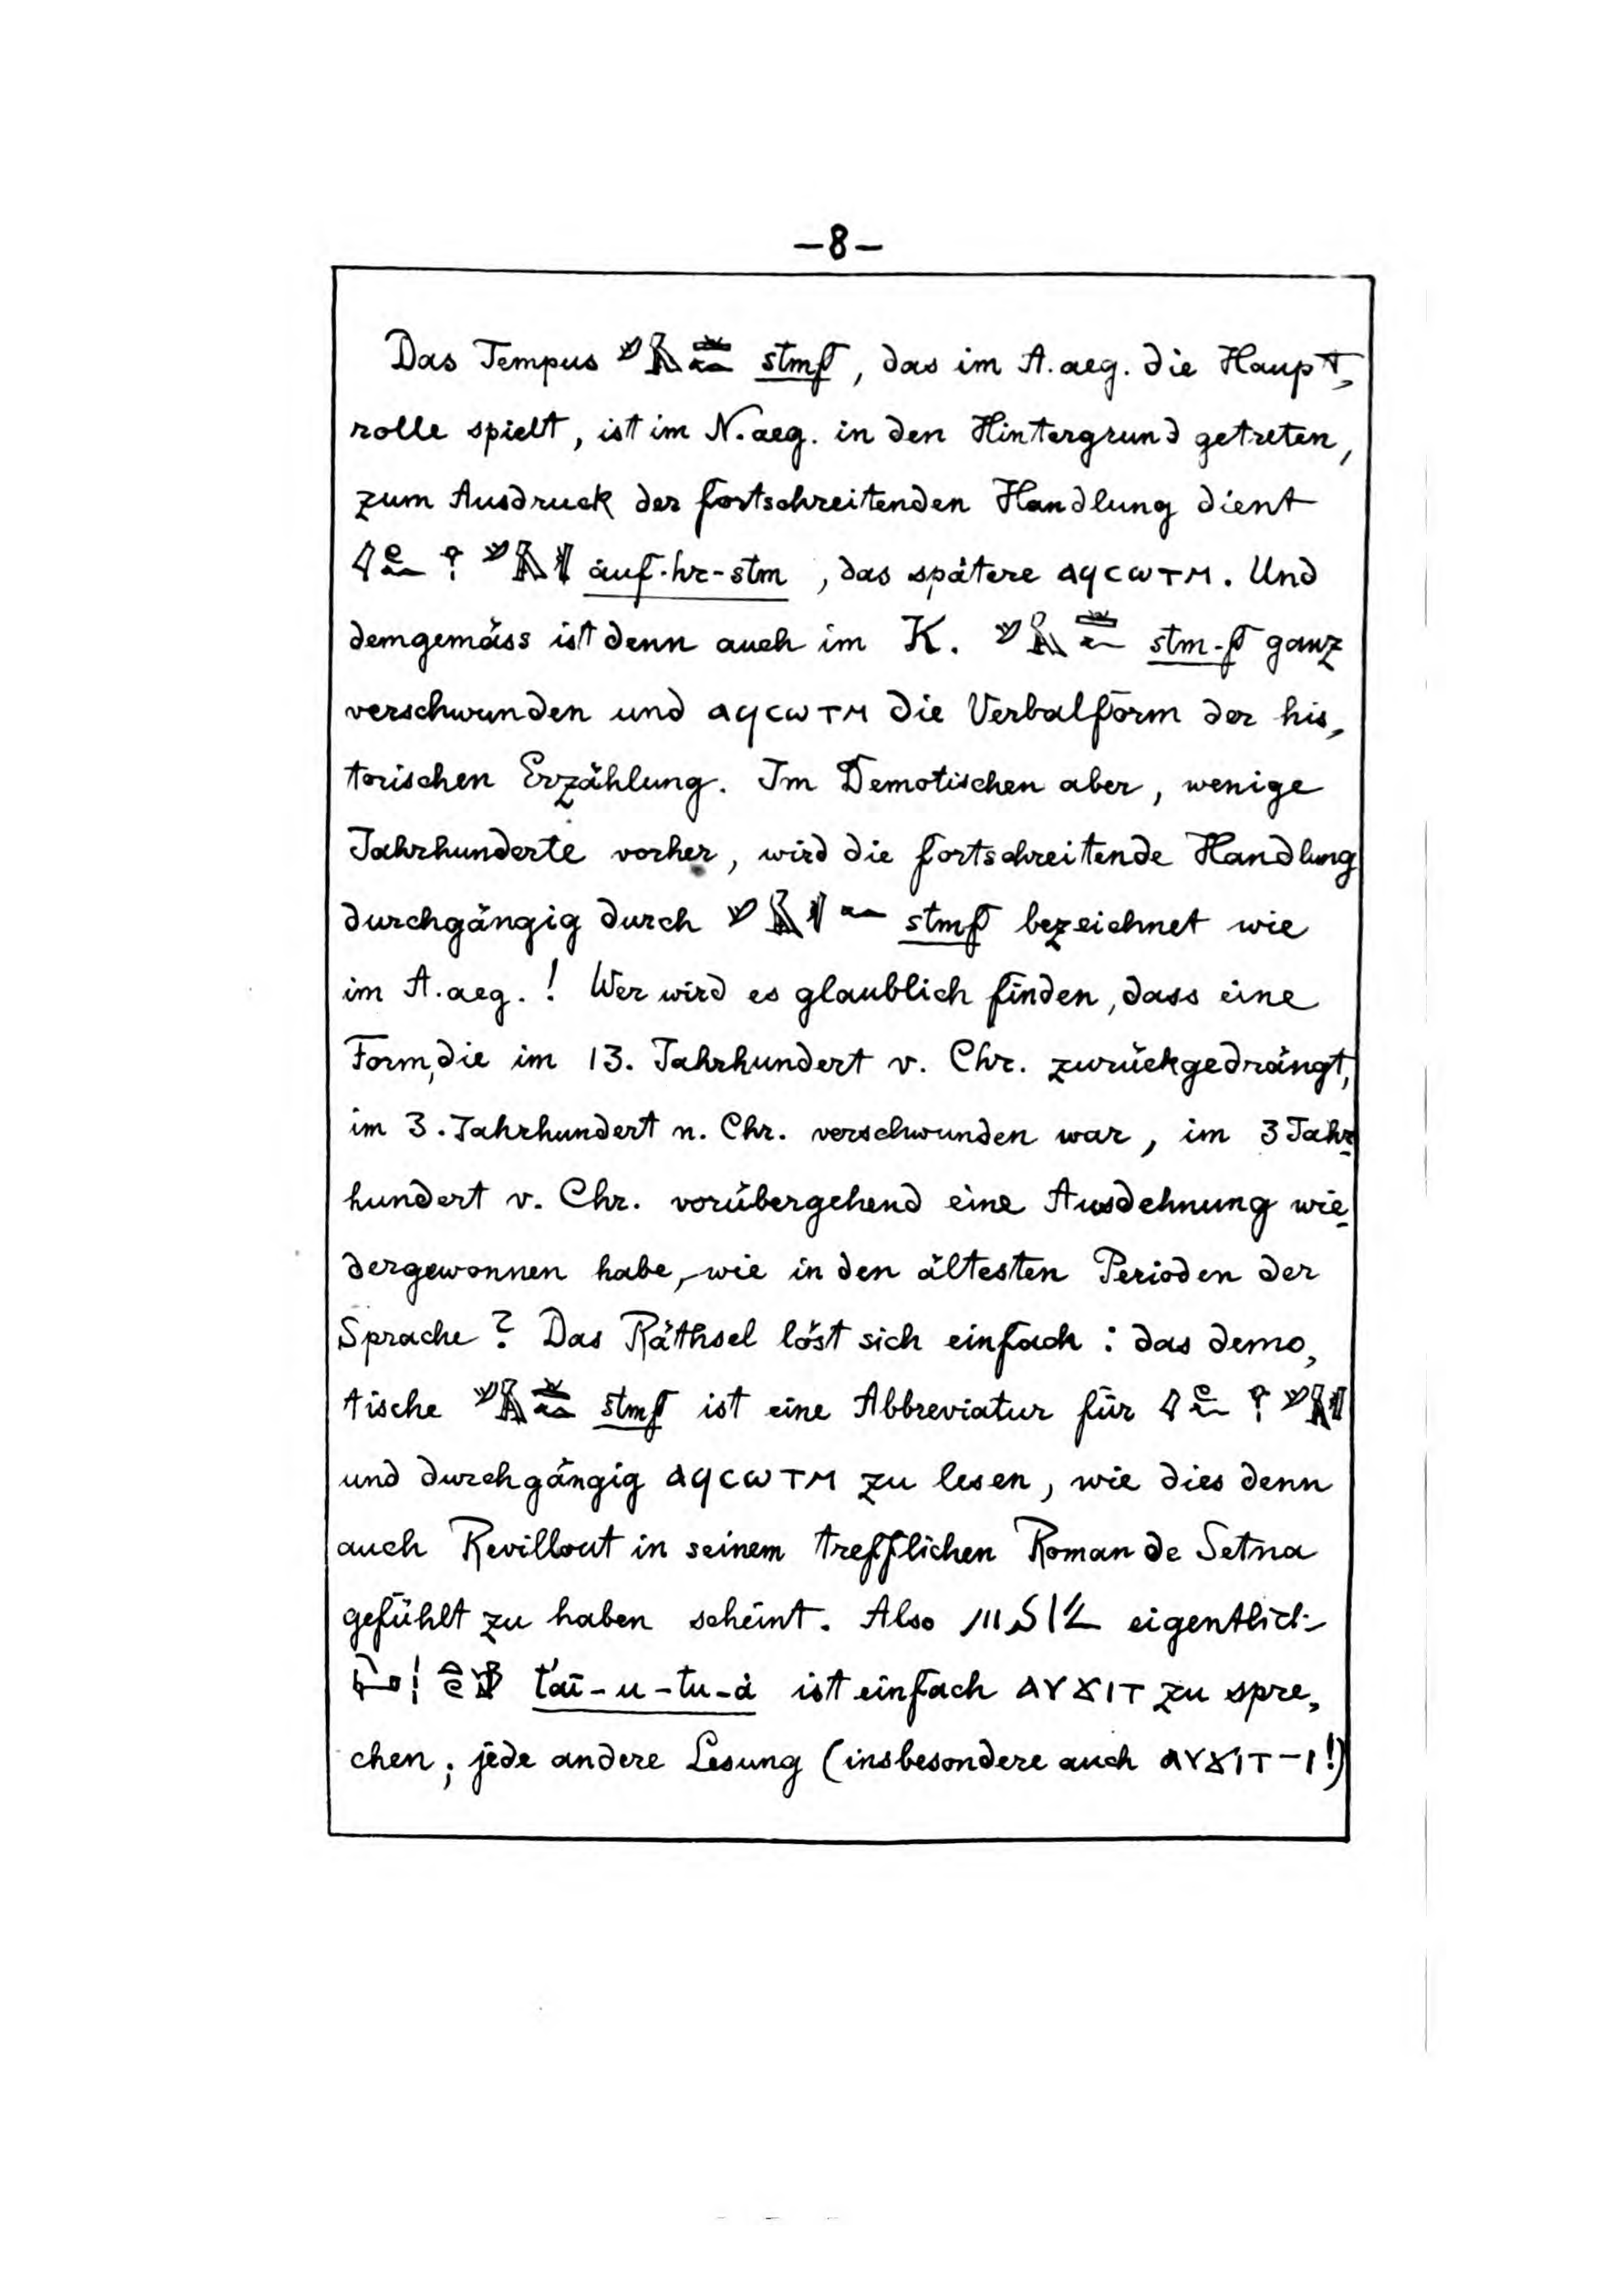 —8—
Das Tempus stmf, das im A.aeg. die Haupt,
rolle spielt, ist im N.aeg. in den Hintergrund getreten,
zum Ausdruck der fortschreitenden Handlung dient
áuf-hr-stm, das spätere ⲁϥⲥⲱⲧⲙ. Und
demgemäss ist denn auch im K. stm-f ganz
verschwunden und ⲁϥⲥⲱⲧⲙ die Verbalform der his,
torischen Erzählung. Im Demotischen aber, wenige
Jahrhunderte vorher, wird die fortschreitende Handlung
durchgängig durch stmf bezeichnet wie
im A.aeg.! Wer wird es glaublich finden, dass eine
Form, die im 13. Jahrhundert v. Chr. zurückgedrängt,
im 3. Jahrhundert n. Chr. verschwunden war, im 3 Jahr-
hundert v. Chr. vorübergehend eine Ausdehnung wie-
dergewonnen habe, wie in den ältesten Perioden der
Sprache? Das Räthsel löst sich einfach: das demo,
tische stmf ist eine Abbreviatur für
und durchgängig ⲁϥⲥⲱⲧⲙ zu lesen, wie dies denn
auch Revillout in seinem trefflichen Roman de Setna
gefühlt zu haben scheint. Also eigentlich
t'aī-u-tu-à ist einfach ⲁⲩϫⲓⲧ zu spre,
chen; jede andere Lesung (insbesondere auch ⲁⲩϫⲓⲧ-ⲓ!)